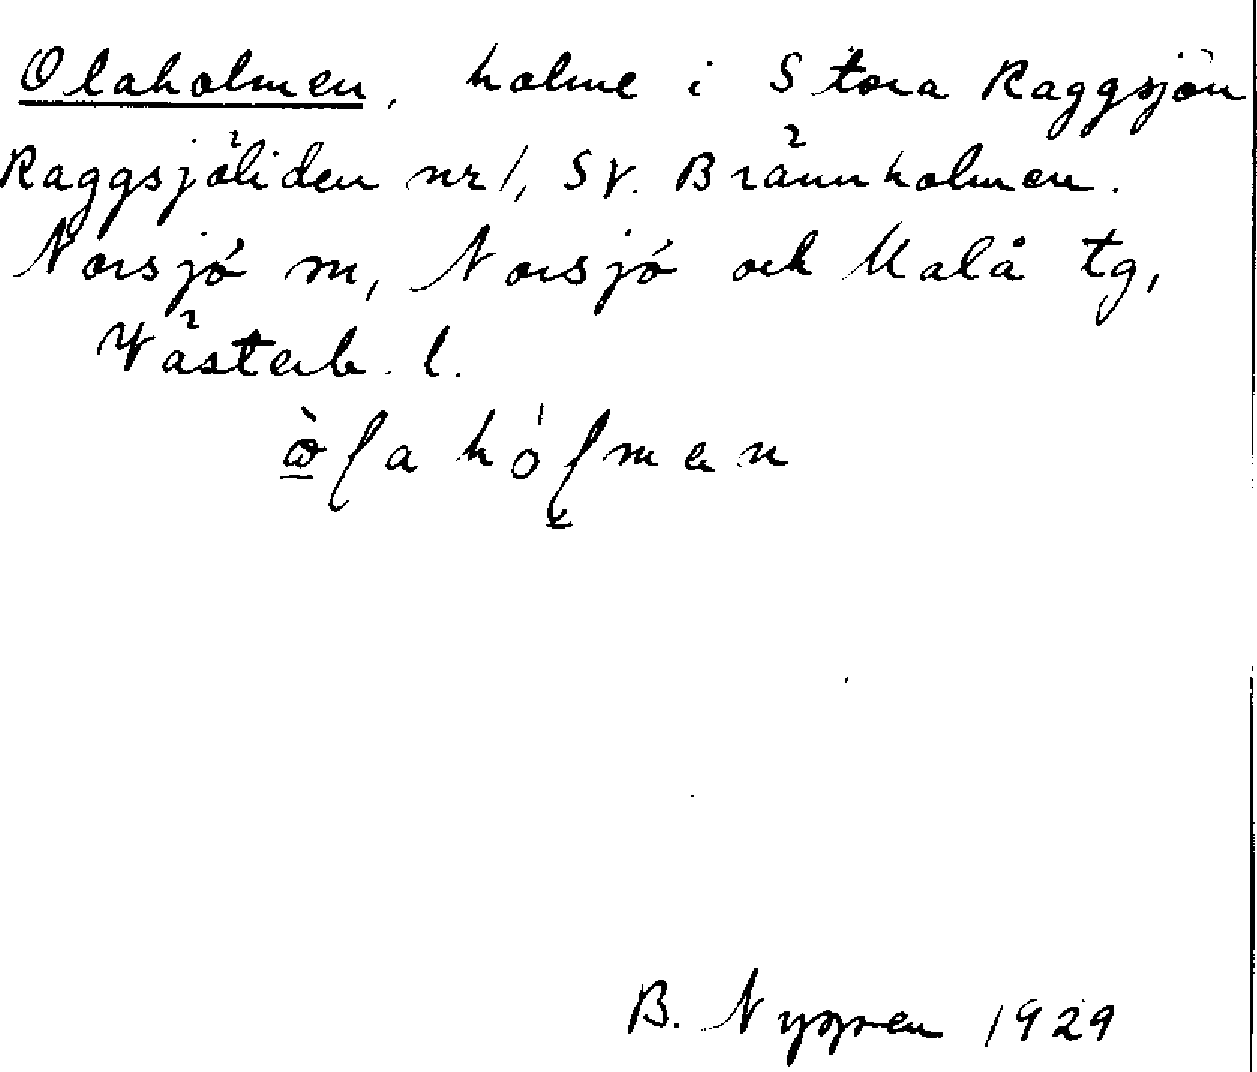 Olaholmen, holme i Stora Raggsjön
Raggsjöliden nr 1, SV. Brännholmen.
Norsjö sn, Norsjö och Malå tg,
Västerb. l.
B. Nygren 1929